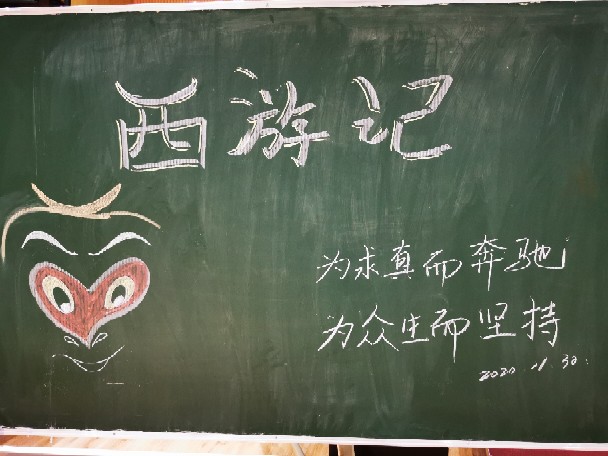 西游记
为求真而奔驰
为众生而坚持
2020.11.30.